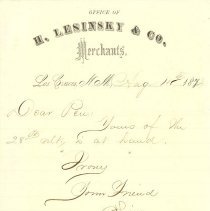 OFFICE OF
H. LESINSKY & CO.
Merchants.
Las Cruces, N. M. Aug 187
Dear Pen
Yours of the
28th ulto is at hand.
Your Friend